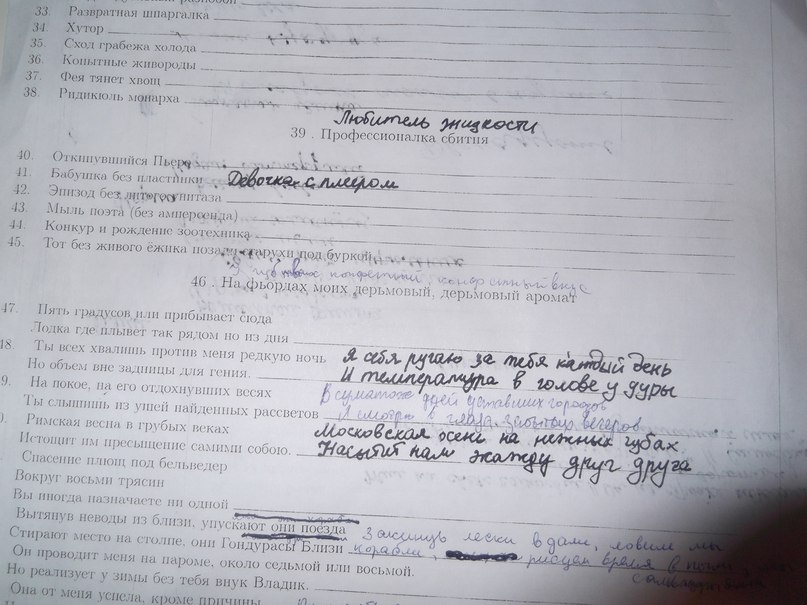 33. Развратная шпаргалка
34. Хутор
35. Сход грабежа холода
36. Копытные живороды
37. Фея тянет хвощ
38. Ридикюль монарха
Любитель жидкости
39 . Профессионалка сбитня
40. Откинувшийся Пьеро
41. Бабушка без пластинки Девочка с плеером
42. Эпизод без литого унитаза
43. Мыль поэта (без амперсенда)
44. Конкур и рождение зоотехника
45. Тот без живого ёжика позади старухи под буркой
конфетный, конфетный вкус
46 . На фьордах моих дерьмовый, дерьмовый аромат
47. Пять градусов или прибывает сюда
Лодка где плывет так рядом но из дня
48. Ты всех хвалишь против меня редкую ночь Я себя ругаю за тебя каждый день
Но объем вне задницы для гения. И температура в голове у дуры
9. На покое, на его отдохнувших весях В суматохе дней уставших городов
Ты слышишь из ушей найденных рассветов Я смотрю в глаза забытых вечеров
0. Римская весна в грубых веках Московская осень на нежных губах
Истощит им пресыщение самими собою. Насытит нам жажду друг друга
Спасение площ под бельведер
Вокруг восьми трясин
Вы иногда назначаете ни одной
Вытянув неводы из близи, упускают они поезда Закинув лески в дали, ловим мы
Стирают место на столпе, они Гондурасы Близи корабли, рисуем время в
Он проводит меня на пароме, около седьмой или восьмой.
Но реализует у зимы без тебя внук Владик.
Она от меня успела, кроме причины